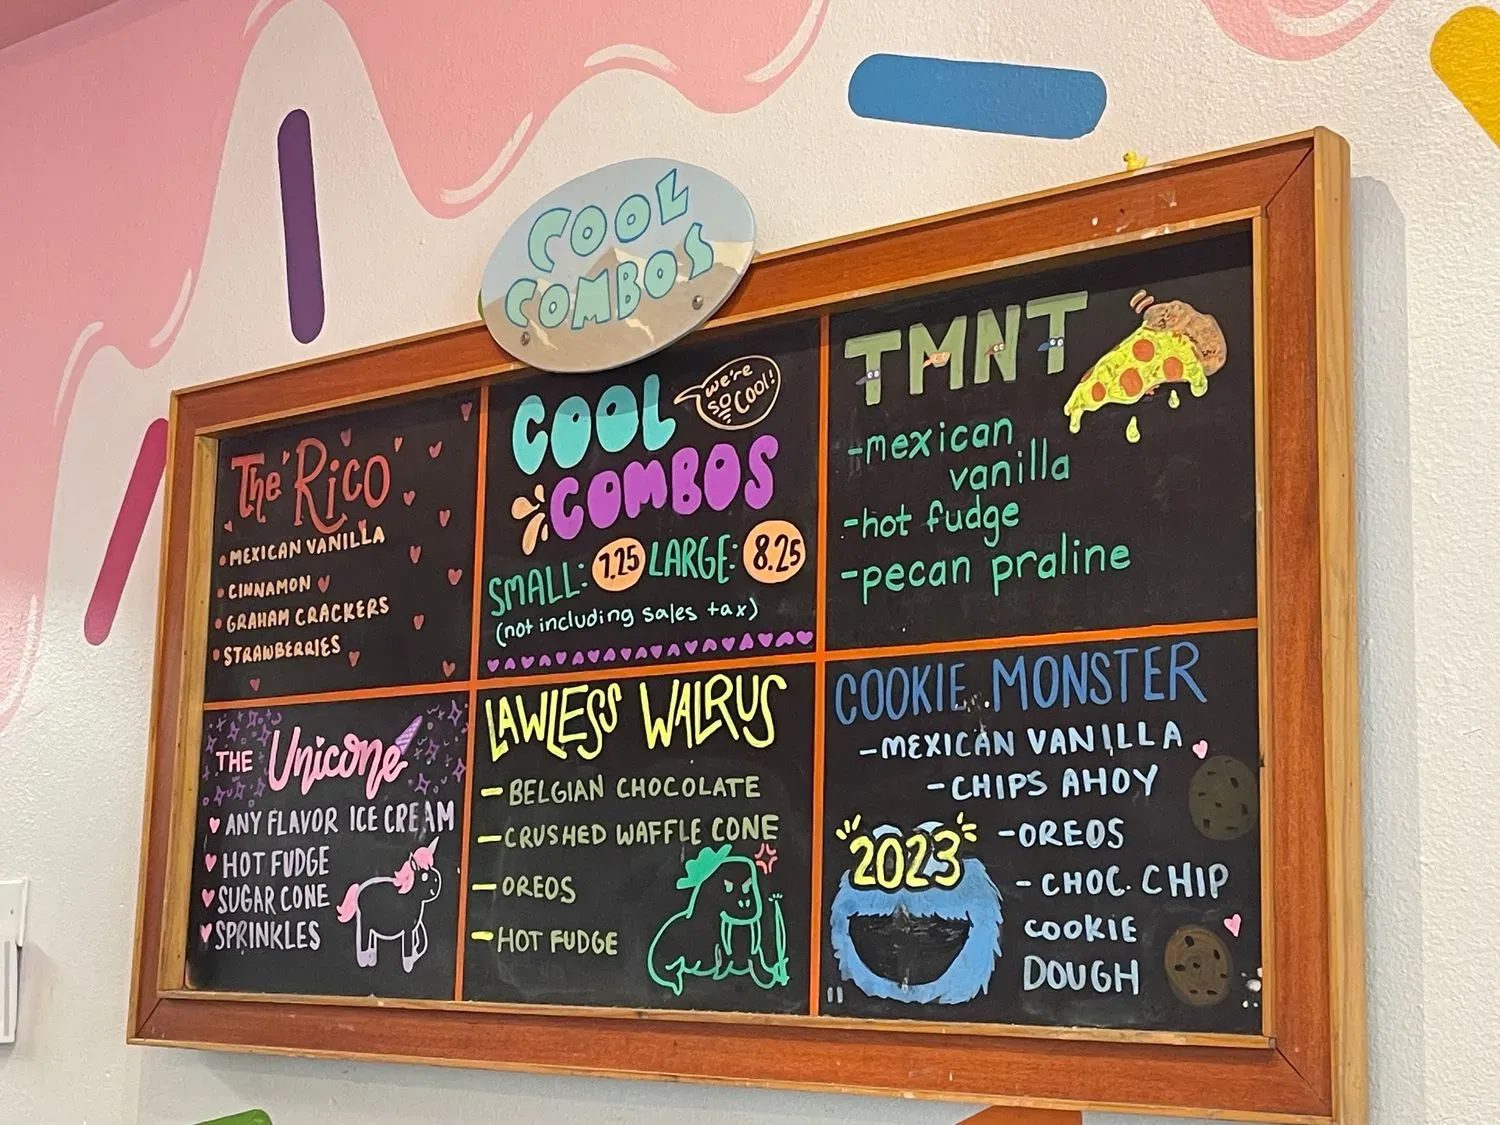 COOL
COMBOS
The Rico
• MEXICAN VANILLA
• CINNAMON
• GRAHAM CRACKERS
• STRAWBERRIES
COOL
COMBOS
we're
SO
COOL!
SMALL: 7.25 LARGE: 8.25
(not including sales tax)
TMNT
-mexican
vanilla
-hot fudge
-pecan praline
THE Unicone
ANY FLAVOR ICE CREAM
HOT FUDGE
SUGAR CONE
SPRINKLES
LAWLESS WALRUS
- BELGIAN CHOCOLATE
- CRUSHED WAFFLE CONE
- OREOS
- HOT FUDGE
COOKIE MONSTER
-MEXICAN VANILLA
-CHIPS AHOY
-OREOS
- CHOC. CHIP
COOKIE
DOUGH
2023